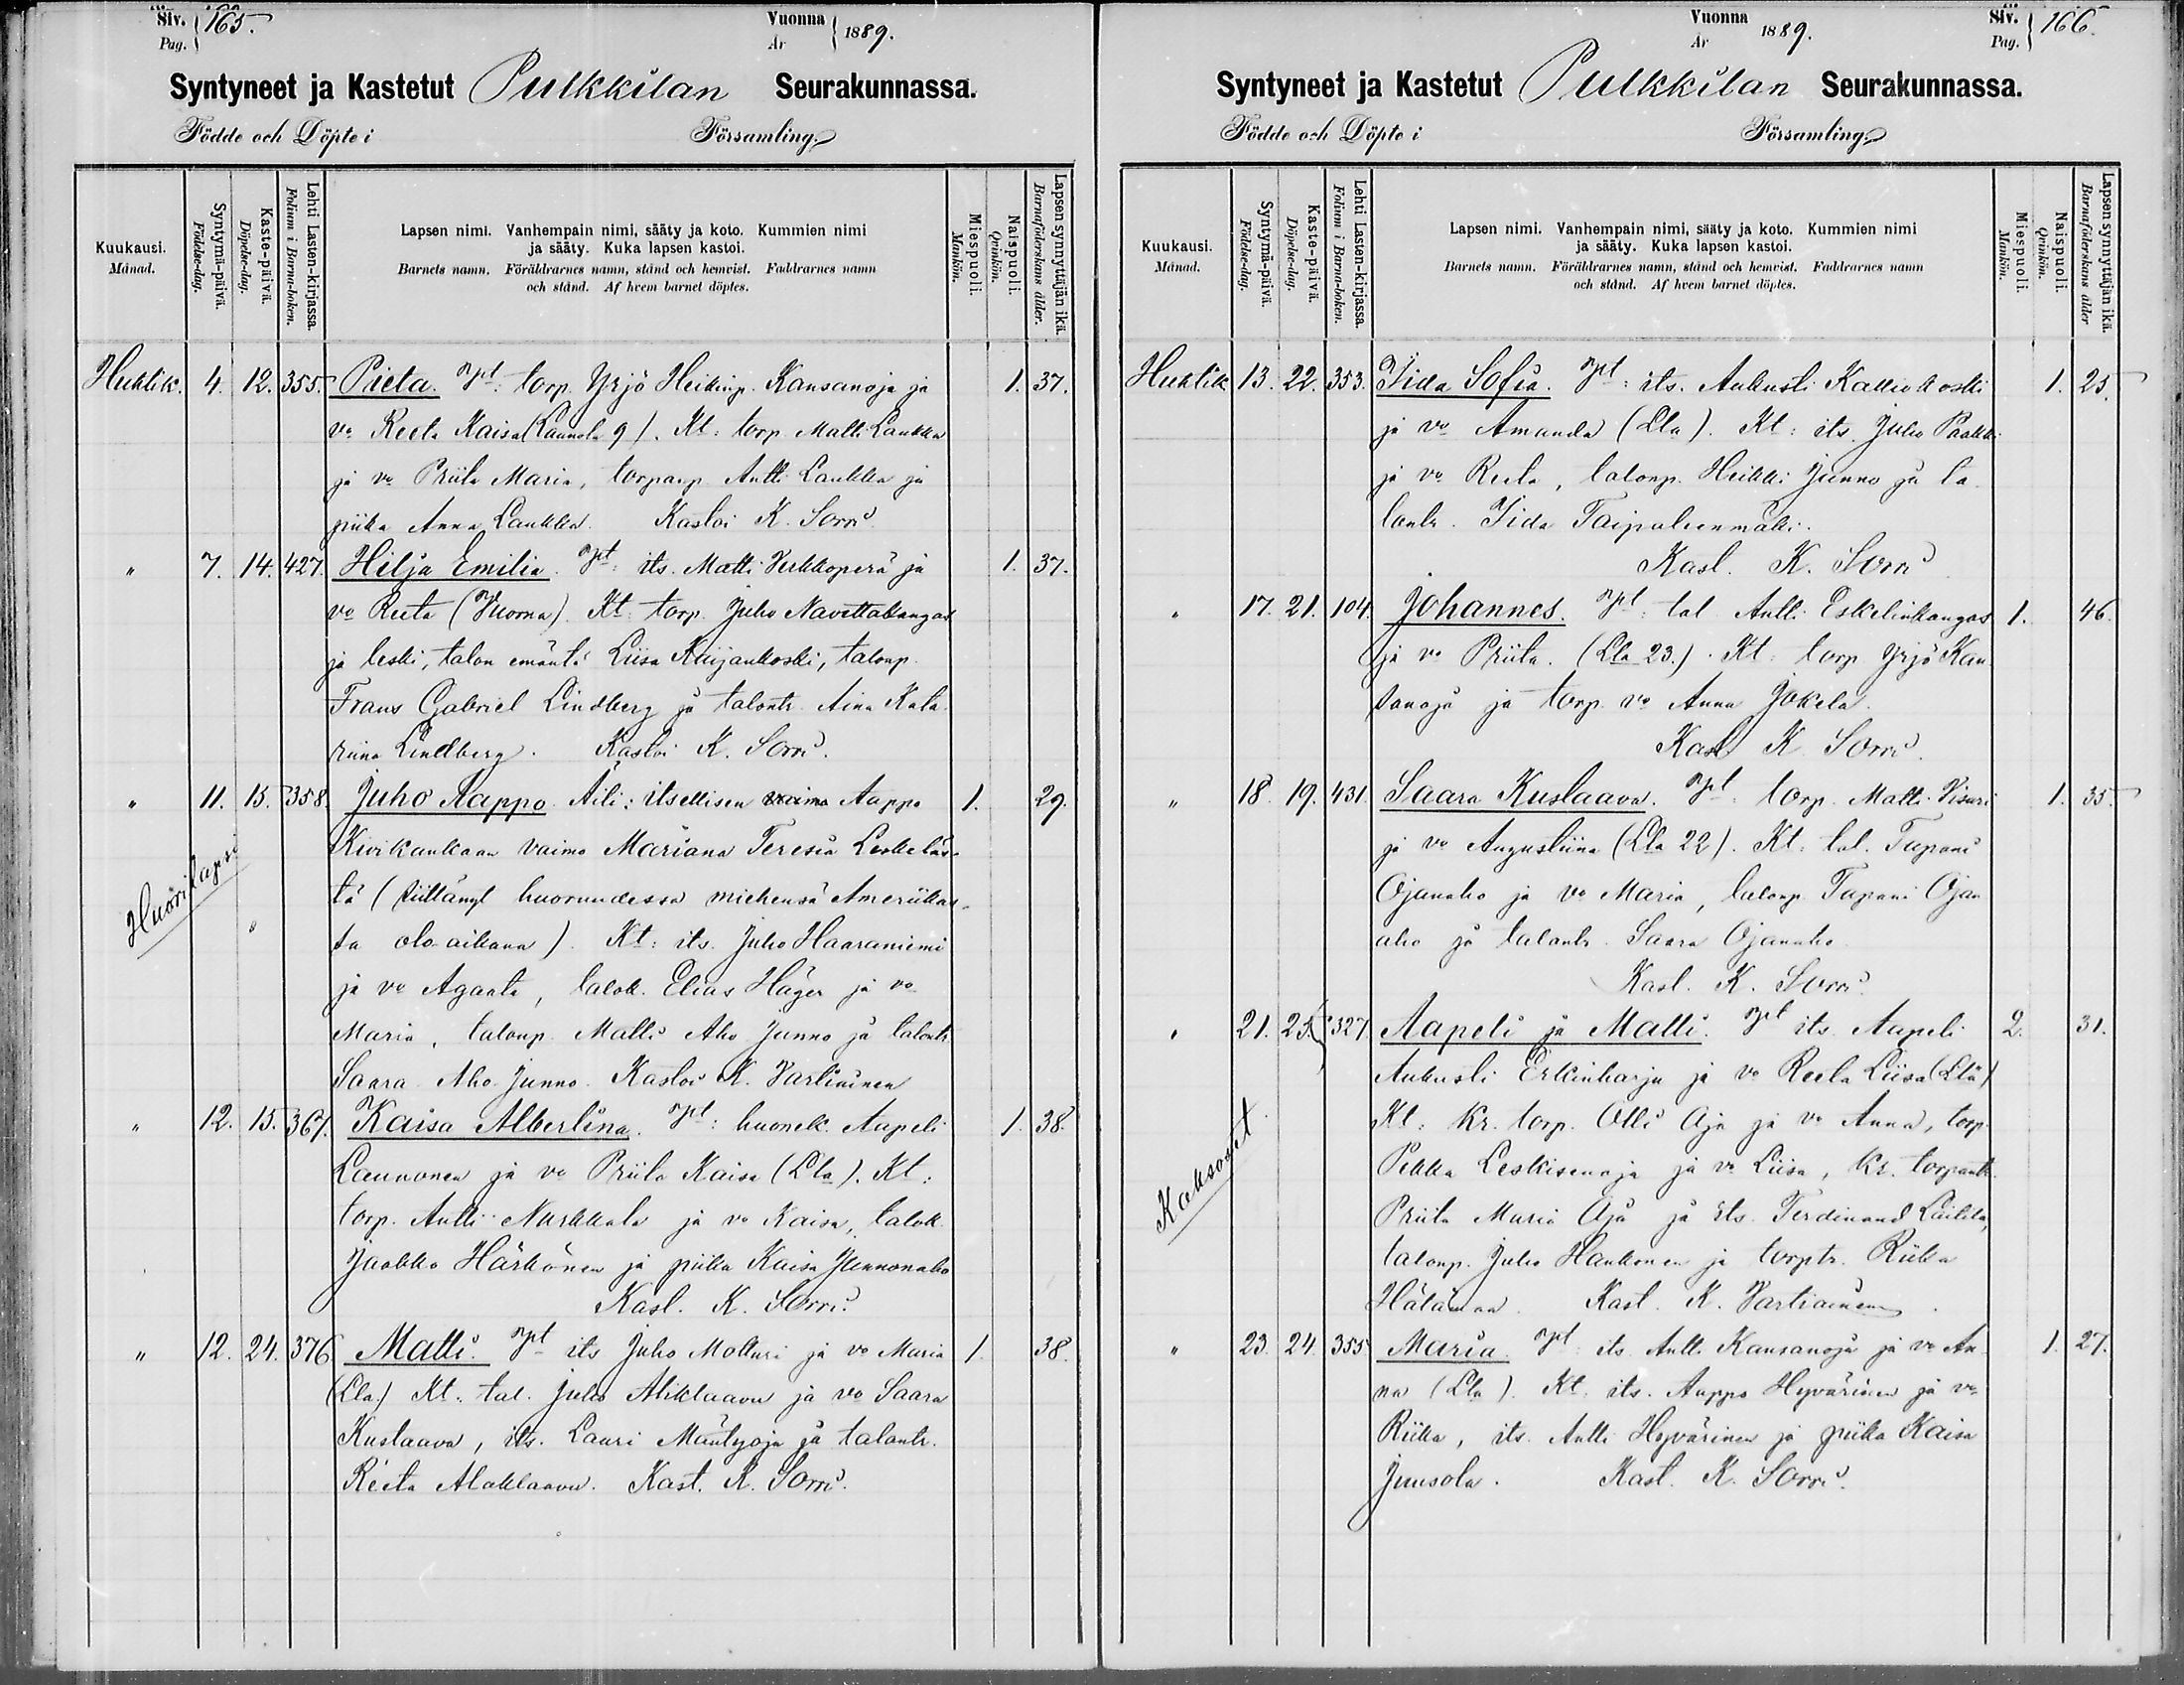 Siv. 165.
Pag.
Vuonna 1889.
År
Syntyneet ja Kastetut Pulkkilan Seurakunnassa.
Födde och Döpte i Församling.
Kuukausi.
Månad.
Syntymä-päivä.
Födelse-dag.
Kaste-päivä.
Döpelse-dag.
Lehti Lasten-kirjassa.
Folium i Barna-boken.
Lapsen nimi. Vanhempain nimi, sääty ja koto. Kummien nimi
ja sääty. Kuka lapsen kastoi.
Barnets namn. Föräldrarnes namn, stånd och hemvist. Faddrarnes namn
och stånd. Af hvem barnet döptes.
Miespuoli.
Mankön.
Naispuoli.
Qvinkön.
Lapsen synnyttäjän ikä.
Barnaföderskans ålder.
Huhtik. 4. 12. 355. Pieta. Vht: torp. Yrjö Heikinp. Kansanoja ja 1. 37.
vo Reeta Kaisa (Launola 9). Kt: torp. Matti Laukka
ja vo Priita Maria, torparp Antti Laukka ja
piika Anna Laukka. Kastoi K. Sorri
" 7. 14. 427. Hilja Emilia. Vht: its. Matti Verkkoperä ja 1. 37.
vo Reeta (Vuorna). Kt: torp. Juho Navettakangas
ja leski, talon emäntä Liisa Kuijankoski, talonp.
Frans Gabriel Lindberg ja talontr. Aina Kata-
riina Lindberg. Kastoi K. Sorri.
" 11. 15. 358. Juho Aappo. Äiti: itsellisen vaimo Aappo 1. 29.
Kivikankaan vaimo Mariana Teresia Leskeläs-
Huorilapsi
tä (siittänyt huoruudessa miehensä Ameriikas-
sa olo aikana). Kt: its. Juho Haaraniemi
ja vo Agaata, talok. Elias Häger ja vo
Maria, talonp. Matti Aho Junno ja talontr.
Saara Aho Junno. Kastoi K. Vartiainen
" 12. 15. 367. Kaisa Albertina. Vht: huonek. Aapeli 1. 38.
Launonen ja vo Priita Kaisa (Lla). Kt:
torp. Antti Nurkkala ja vo Kaisa, talok.
Jaakko Härkönen ja piika Kaisa Junnonaho
Kast. K. Sorri.
" 12. 24. 376 Matti. Vht its Juho Motturi ja vo Maria 1. 38.
(Lla) Kt: tal. Juho Aliklaavu ja vo Saara
Kustaava, its. Lauri Mäntyoja ja talontr.
Reeta Alaklaavu. Kast. K. Sorri.
Vuonna 1889.
År
Siv. 166.
Pag.
Syntyneet ja Kastetut Pulkkilan Seurakunnassa.
Födde och Döpte i Församling.
Kuukausi.
Månad.
Syntymä-päivä.
Födelse-dag.
Kaste-päivä.
Döpelse-dag.
Lehti Lasten-kirjassa.
Folium i Barna-boken.
Lapsen nimi. Vanhempain nimi, sääty ja koto. Kummien nimi
ja sääty. Kuka lapsen kastoi.
Barnets namn. Föräldrarnes namn, stånd och hemvist. Faddrarnes namn
och stånd. Af hvem barnet döptes.
Miespuoli.
Mankön.
Naispuoli.
Qvinkön.
Lapsen synnyttäjän ikä.
Barnaföderskans ålder
Huhtik 13. 22. 353. Iida Sofia. Vht: its. Aukusti Kalliokoski 1. 25.
ja vo Amanda (Lla). Kt: its. Juho Paakki
ja vo Reeta, talonp. Heikki Junno ja ta-
lontr. Iida Taipaleenmäki.
Kast. K. Sorri
" 17. 21. 104. Johannes. Vht: tal. Antti Eskelinkangas 1. 46.
ja vo Priita. (Lla 23.). Kt: torp. Yrjö Kan-
sanoja ja torp. vo Anna Jokela.
Kast K. Sorri.
" 18. 19. 431. Saara Kustaava. Vht: torp. Matti Visuri 1. 35.
ja vo Augustiina (Lla 22). Kt: tal. Tapani
Ojanaho ja vo Maria, talonp. Tapani Ojan-
aho ja talontr. Saara Ojanaho.
Kast. K. Sorri.
" 21. 25. 327. Aapeli ja Matti. Vht its. Aapeli 2. 31.
Aukusti Erkinharju ja vo Reeta Liisa (Lla)
Kaksoset
Kt: Kr. torp. Olli Oja ja vo Anna, torp.
Pekka Leskisenoja ja vo Liisa, Kr. torpantr.
Priita Maria Oja ja its. Ferdinand
talonp. Juho Haukonen ja torptr. Riika
Kast. K. Vartiainen.
" 23. 24. 355 Maria. Vht: its. Antti Kansanoja ja vo An- 1. 27.
na (Lla). Kt: its. Aappo Hyvärinen ja vo
Riika, its. Antti Hyvärinen ja piika Kaisa
Juusola. Kast. K. Sorri.